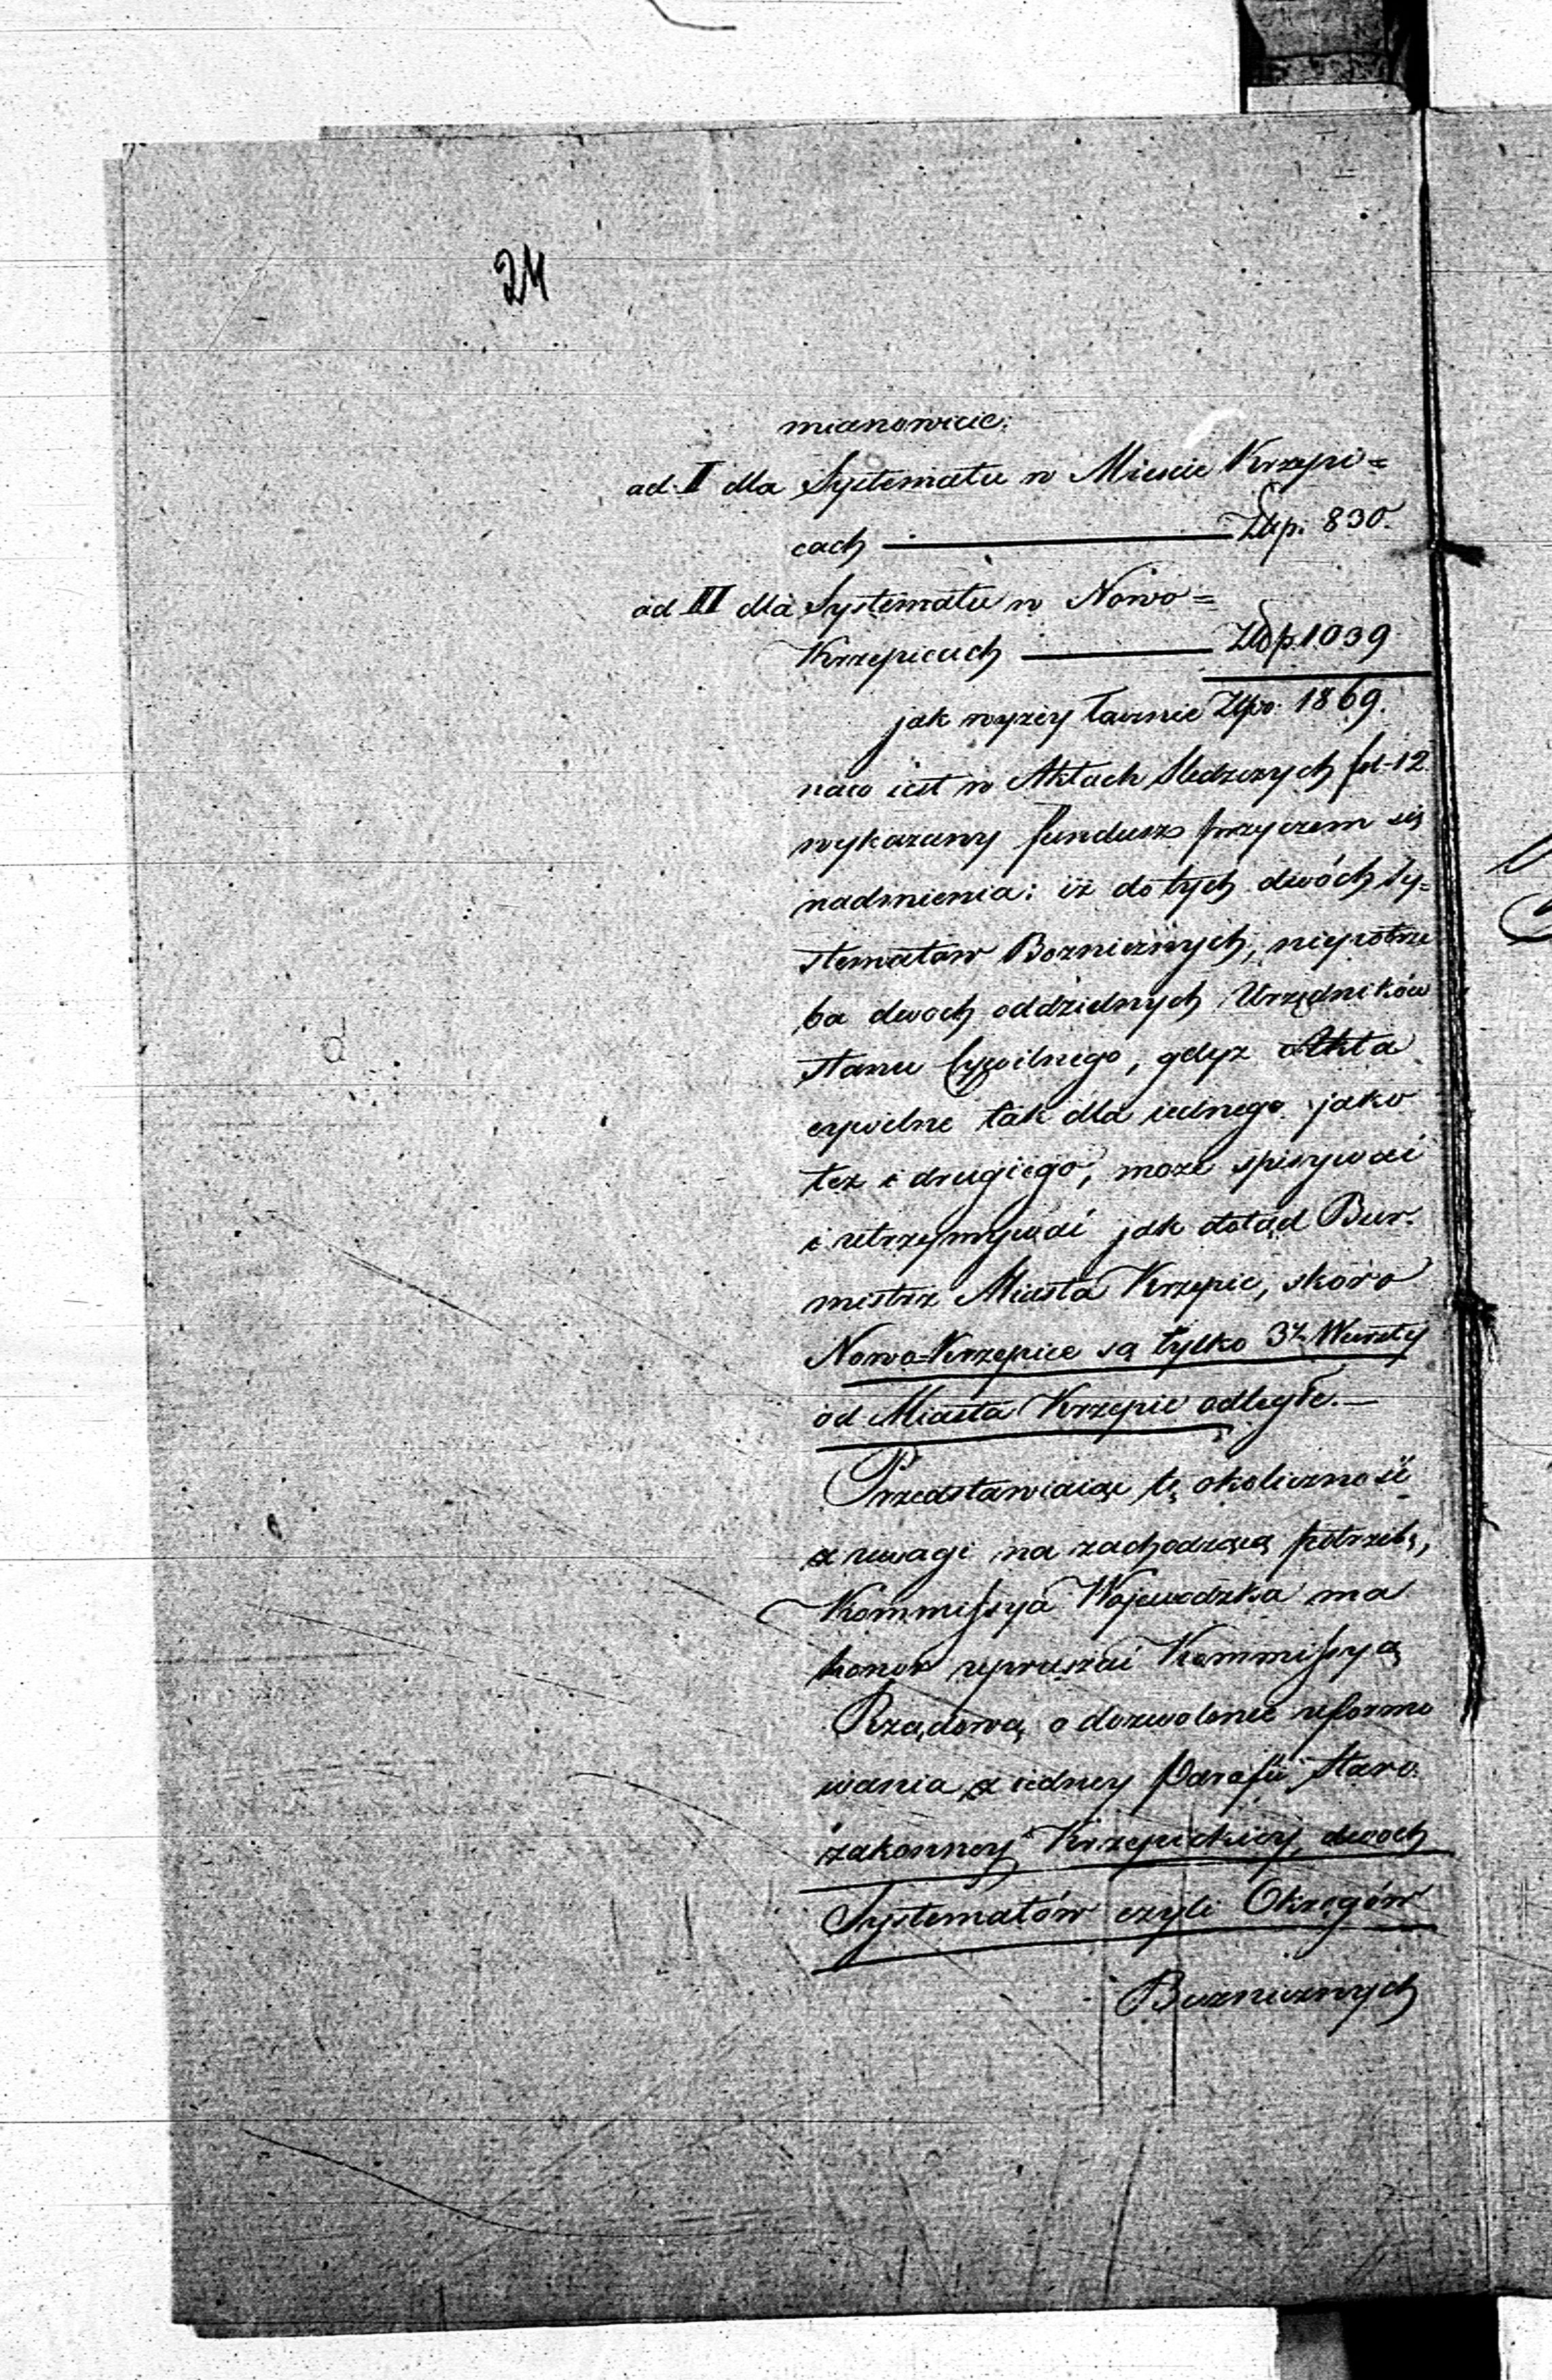 24
mianowicie:
ad I dla Systematu w Miescie Krzepi=
cach Złp. 830.
ad II dla Systematu w Nowo=
Krzepicach Złp. 1039
jak wyżey łącznie Złp. 1869.
nało iest w Aktach śledczych fol. 12
wykazany fundusz przyczem się
nadmienia: iż do tych dwóch Sy=
stematow Bożnicznych, niepotrze
ba dwoch oddzielnych Urzędników
stanu Cywilnego, gdyż Akta
cywilne tak dla iednego jako
też i drugiego, może spisywać
i utrzymywać jak dotąd Bur.
mistrz Miasta Krzepic, skoro
Nowo=Krzepice są tylko 3y Wiorsty
od Miasta Krzepic odległe.—
Przedstawiaiąc tę okoliczność
z uwagi na zachodzącą potrzebę,
Kommissya Wojewodzka ma
honor upraszać Kommissyą
Rządową o dozwolenie uformo
wania z iedney Parafii Staro
zakonney Krzepickiey, dwoch
Systematów czyli Okręgów
Bożnicznych